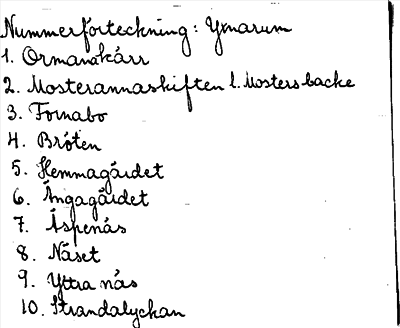 Nummerförteckning: Yxnarum
1. Ormanäkärr
2. Mosterannaskiften l. Mosters backe
3. Fornabo
4. Bröten
5. Hemmagärdet
6. Ängagärdet
7. Äspenäs
8. Näset
9. Yttra näs
10. Strandalyckan